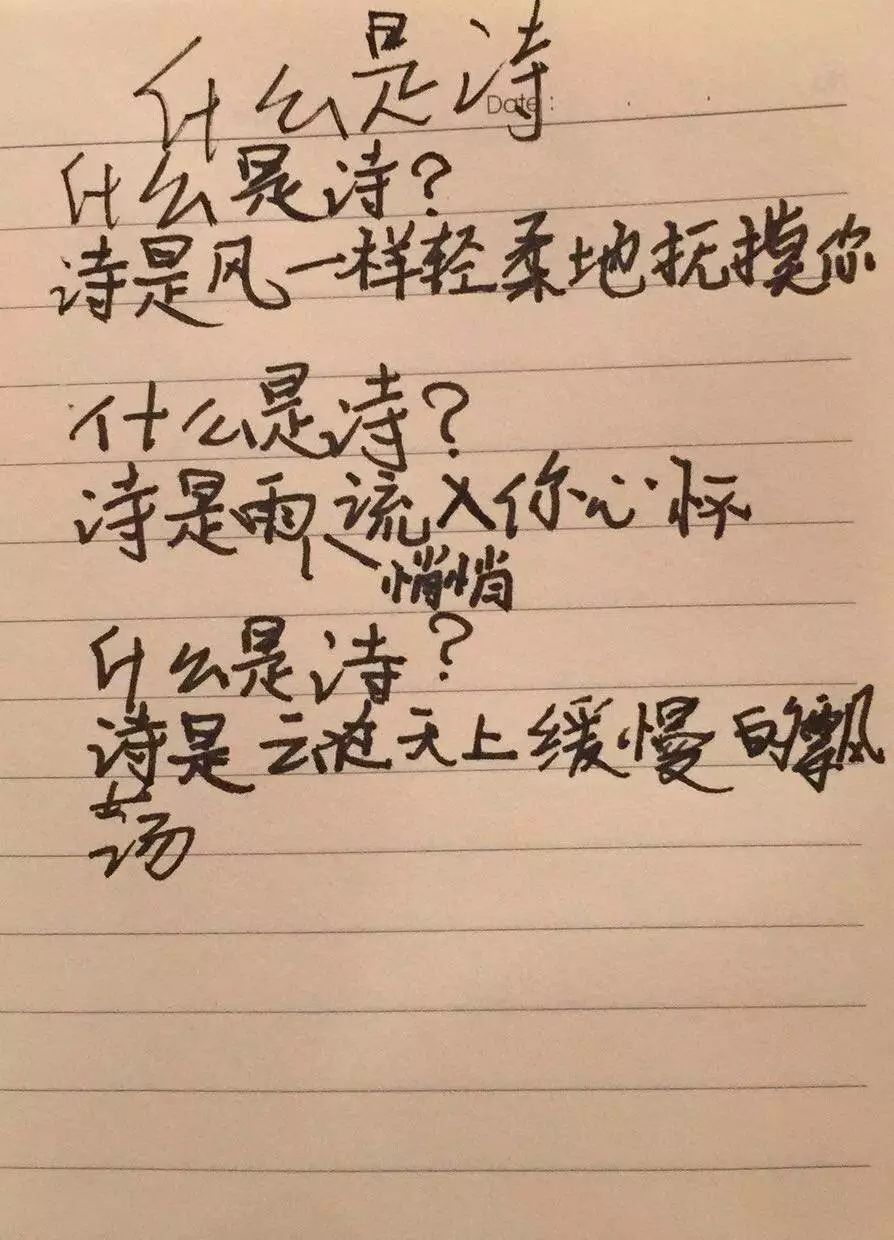 什么是诗
Date:
什么是诗?
诗是风一样轻柔地抚摸你
什么是诗?
诗是雨悄悄流入你心怀
什么是诗?
诗是云在天上缓慢的飘
荡